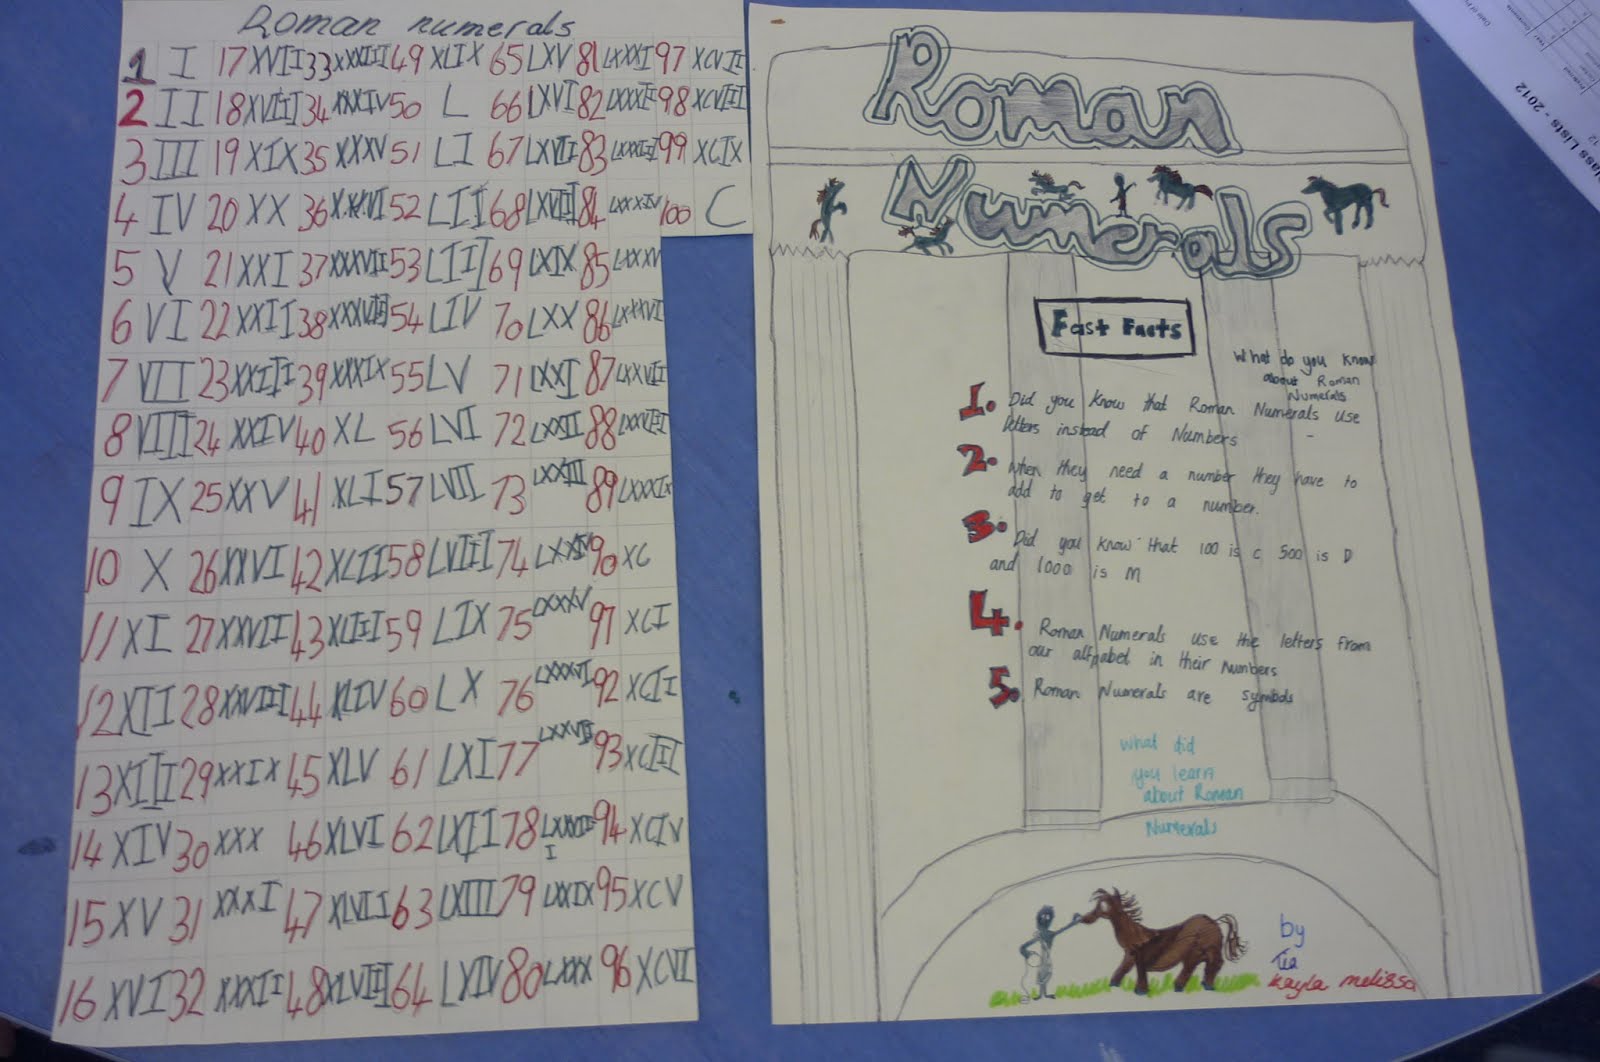 Roman numerals
1 I 17 XVII 33 XXXIII 49 XLIX 65 LXV 81 LXXXI 97 XCVII
2 II 18 XVIII 34 XXXIV 50 L 66 LXVI 82 LXXXII 98 XCVIII
3 III 19 XIX 35 XXXV 51 LI 67 LXVII 83 LXXXIII 99 XCIX
4 IV 20 XX 36 XXXVI 52 LII 68 LXVIII 84 LXXXIV 100 C
5 V 21 XXI 37 XXXVII 53 LIII 69 LXIX 85 LXXXV
6 VI 22 XXII 38 XXXVIII 54 LIV 70 LXX 86 LXXXVI
7 VII 23 XXIII 39 XXXIX 55 LV 71 LXXI 87 LXXVII
8 VIII 24 XXIV 40 XL 56 LVI 72 LXXII 88
9 IX 25 XXV 41 XLI 57 LVII 73 LXXIII 89 LXXXIX
10 X 26 XXVI 42 XLII 58 LVIII 74 LXXIV 90 XC
11 XI 27 XXVII 43 XLIII 59 LIX 75 LXXXV 91 XCI
12 XII 28 XXVIII 44 XLIV 60 LX 76 LXXXVI 92 XCII
13 XIII 29 XXIX 45 XLV 61 LXI 77 LXXVII 93 XCIII
14 XIV 30 XXX 46 XLVI 62 LXII 78 LXXVIII 94 XCIV
15 XV 31 XXXI 47 XLVII 63 LXIII 79 LXXIX 95 XCV
16 XVI 32 XXXII 48 XLVIII 64 LXIV 80 LXXX 96 XCVI
Roman
Numerals
Fast Facts
What do you know
about Roman
Numerals
1. Did you know that Roman Numerals use
letters instead of Numbers
2. When they need a number they have to
add to get to a number.
3. Did you know that 100 is c 500 is D
and 1000 is M
4. Roman Numerals use the letters from
our alfpabed in their Numbers
5. Roman Numerals are symbols
what did
you learn
about Roman
Numerals
by
Tia
kayla melissa
ass Lists - 2012